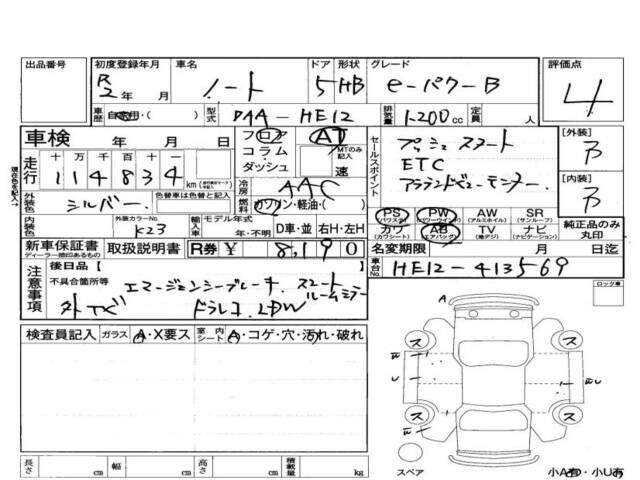 出品番号 初度登録年月 車名 ドア 形状 グレード 評価点
R2年 月 ノート 5 HB e-パワーB 4
車歴 自家用・( ) 型式 DAA-HE12 排気量 1200cc 定員 人
車検 年 月 日 フロア コラム・ダッシュ AT MTのみ記入 速
走行 十 万 千 百 十 一
114834 km
冷房 AAC
燃料 ガソリン・軽油・( )
セールスポイント
プッシュスタート
ETC
アラウンドビューモニター
[外装] B
[内装] B
外装色 シルバー 色替車は色替と記入
内装色 外装カラーNo. K23 輸入車 モデル年式 年・不明 D車・並 右H・左H
PS (パワステ) PW (パワーウインドウ) AW (アルミホイル) SR (サンルーフ)
カワ (カワシート) AB (エアバッグ) TV (純デジ) ナビ (ナビゲーション)
純正品のみ丸印
新車保証書 ディーラー捺印あるもの 取扱説明書 R券 ¥ 8,190
名変期限 月 日迄
車台No. HE12-413569
注意事項 後日品【 】
不具合箇所等 エマージェンシーブレーキ スマートルームミラー
外TV ドラレコ LDW
ロック車
検査員記入 ガラス A・X要ス 室内シート A・コゲ・穴・汚れ・破れ
A
ス ス
U
ス ス
スペア
小A有・小U有
長さ cm 幅 cm 高さ cm 積載量 kg